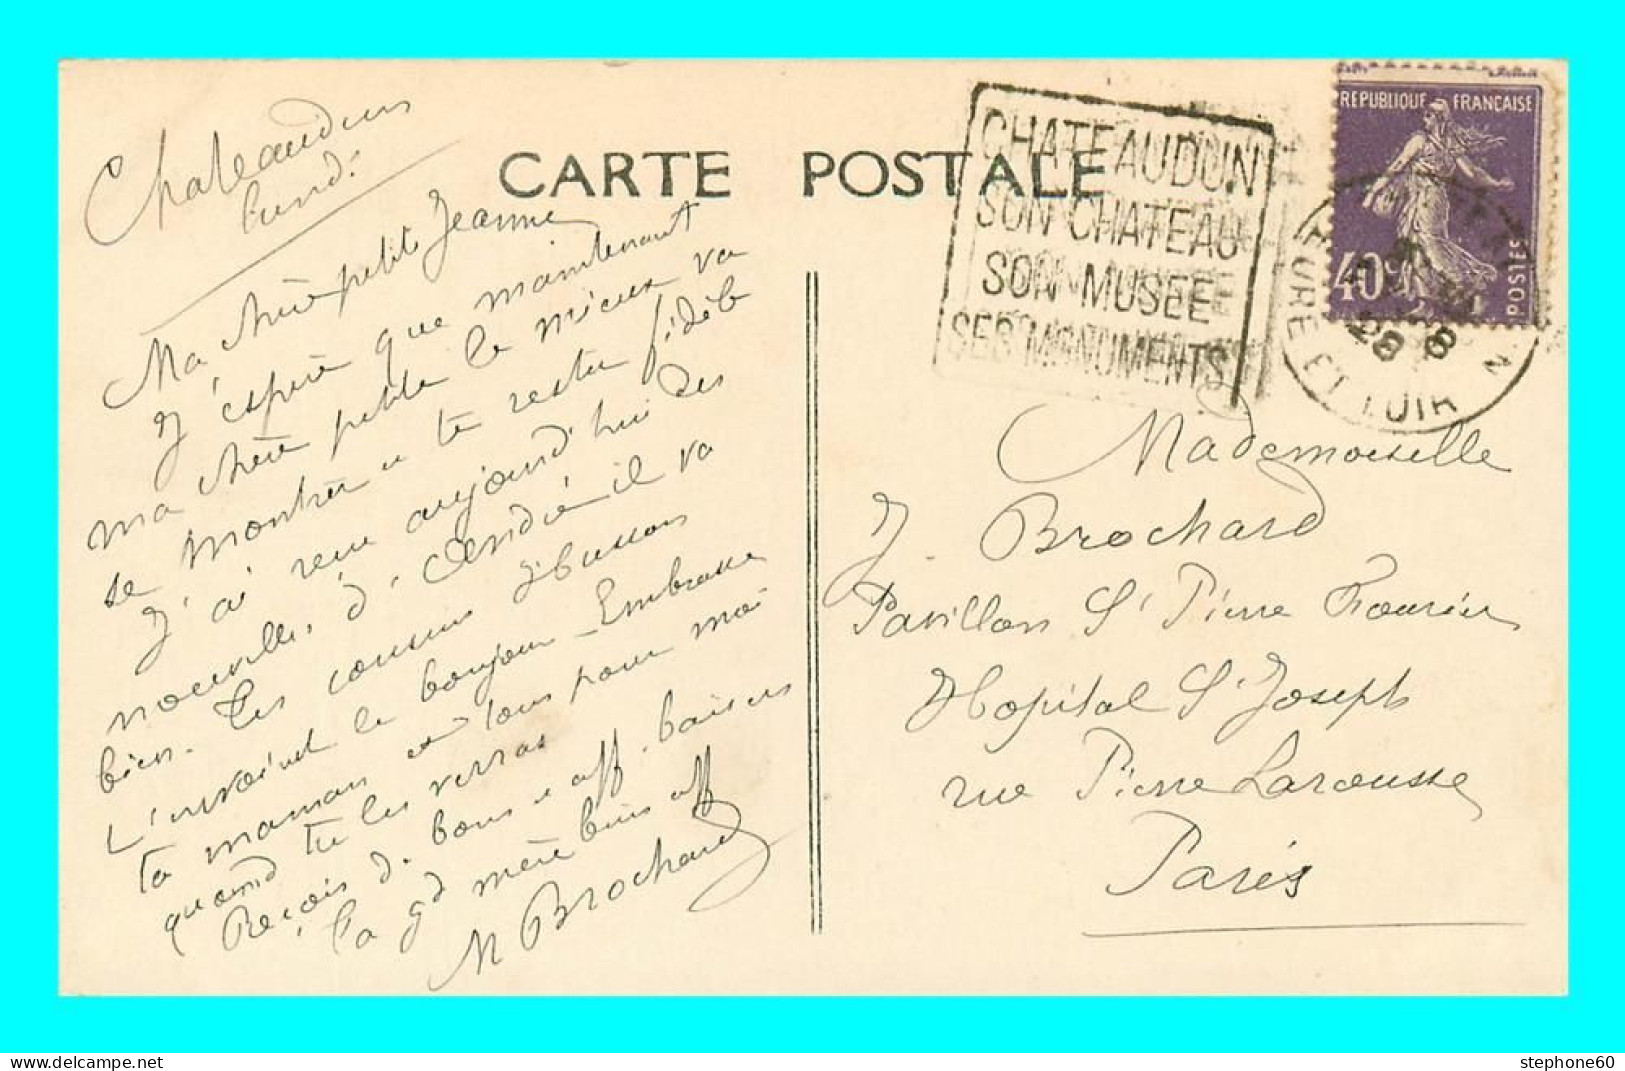 CARTE POSTALE
CHATEAUDUN
SON CHATEAU
SON MUSEE
SES MONUMENTS
REPUBLIQUE FRANÇAISE
40c
POSTES
EURE ET LOIR
28
Chateaudun
lundi
Ma chère petite Jeanne
J'espère que maintenant
ma chère petite le mieux va
se montrer te rester fidèle
J'ai reçu aujourd'hui des
nouvelles d' il va
bien. Tes cousins
t'envoient le bonjour - Embrasse
ta maman et tous pour moi
quand tu les verras
Reçois de bons baisers
ta gd mère bien aff
M Brochard
Mademoiselle
J. Brochard
Pavillon St Pierre Fourier
Hopital St Joseph
rue Pierre Larousse
Paris
stephone60